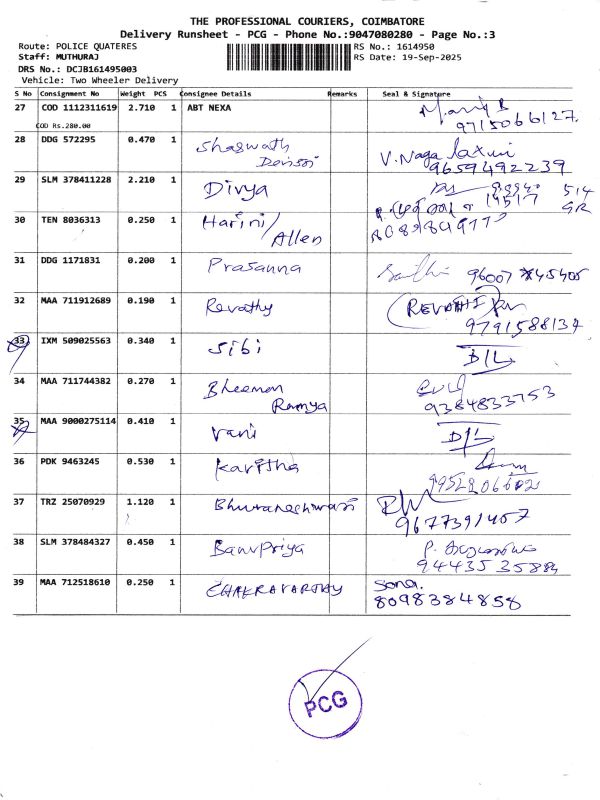 THE PROFESSIONAL COURIERS, COIMBATORE
Delivery Runsheet - PCG - Phone No.:9047080280 - Page No.:3
Route: POLICE QUATERES
RS No.: 1614950
Staff: MUTHURAJ
RS Date: 19-Sep-2025
DRS No.: DCJB161495003
Vehicle: Two Wheeler Delivery
S No Consignment No Weight PCS Consignee Details Remarks Seal & Signature
27 COD 1112311619 2.710 1 ABT NEXA
COD Rs.280.00
9715066127
28 DDG 572295 0.470 1 Shaswath
V. Naga laxmi
9659492239
29 SLM 378411228 2.210 1 Divya
514
GR
30 TEN 8036313 0.250 1 Harini/
Allen
31 DDG 1171831 0.200 1 Prasanna
32 MAA 711912689 0.190 1 Revathy REVATHI
9791588134
33 IXM 509025563 0.340 1 Sibi D/L
34 MAA 711744382 0.270 1
Ramya 9384833753
35 MAA 9000275114 0.410 1 Vani D/L
36 PDK 9463245 0.530 1 Kavitha
37 TRZ 25070929 1.120 1 Bhuvaneshwari
9677391407
38 SLM 378484327 0.450 1 BanuPriya
39 MAA 712518610 0.250 1 CHAKRAVARTHY Sona.
8098384858
PCG